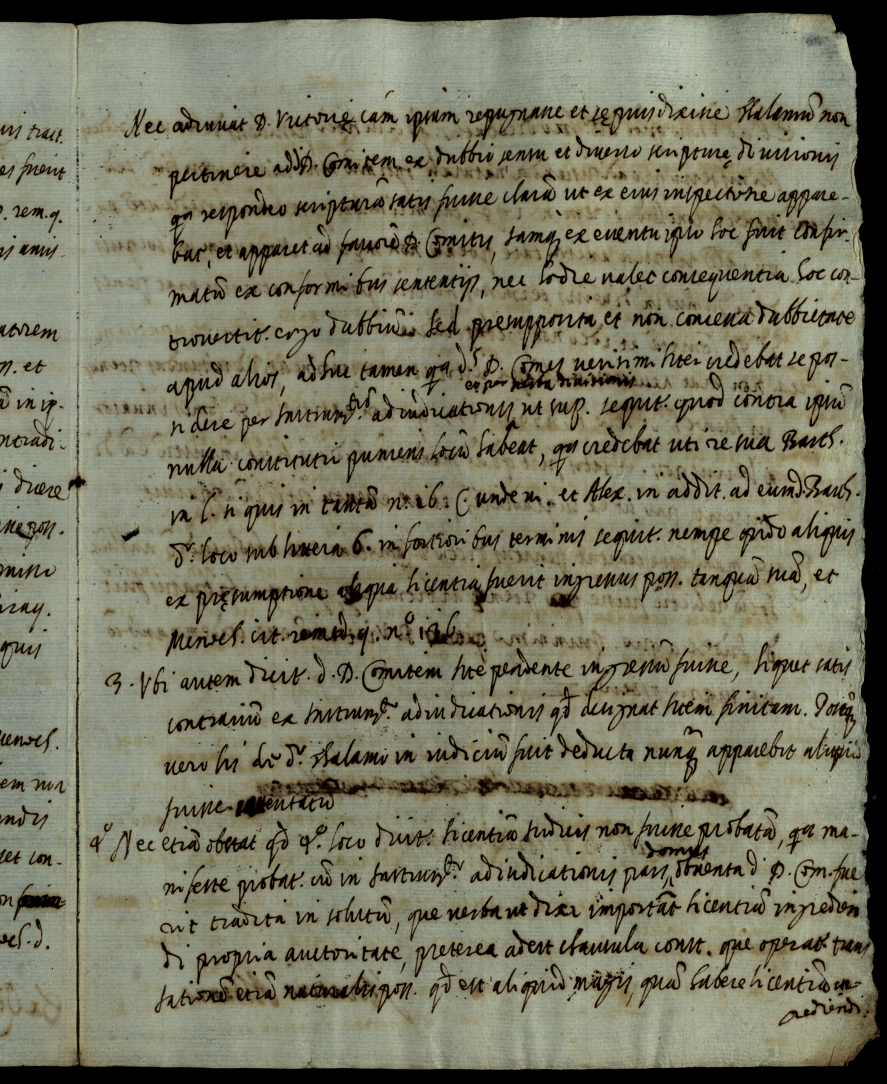 uis tract.
es fuerit
. rem. q.
atorem
ss. et
in ip.
ntradi-
i dicere
quis
em non
andis
et con-
Nec adiuuat D. Victorię cām ipsam repugnasse et sępius dixisse thalamū non
pertinere ad D. Comitem ex dubbio sensu et diuerso scripturę diuisionis
qa respondeo scripturā satis fuisse clarā ut ex eius inspectione appare-
bat, et apparet ad fauorē D. Comitis, tamq ex euentu ipso hoc fuit confir-
matū ex conformibus sententijs, nec hodie ualet consequentia hoc con-
trouertit. ergo dubbiū. sed presupposita et non concessa dubbietate
apud alios, adhuc tamen qa ds D. Comes uerisimiliter credebat se pos-
et per uerba diuisionis
sidere per Instrumtū adiudicationis ut sup. sequit. quod contra ipsū
nulla constitutio puniens locū habeat, qa credebat uti re sua Barth.
in l. si quis in tantā n. 16. C. unde ui. et Alex. in addit. ad eumd. Barth.
dº. loco sub littera 6. in fortioribus terminis sequit. nempe qñdo aliquis
ex presumptione aliqua licentia fuerit ingressus poss. tanquā suā, et
Menoch. cit. remed. 9. nº 136.
3. Vbi autem dicit. d. D. Comitem lite pendente ingressū fuisse, liquet satis
contrariū ex Instrumto. adiudicationis qd designat litem finitam. Postq
uero lis de do. thalamo in iudiciū fuit deducta nunq apparebit aliquid
fuisse attentatū
4º Nec etiā obstat qd 4º. loco dicit. licentiā Iudicis non fuisse probatā, qa ma-
domus
nifeste probat. cū in Instrumto. adiudicationis pars, obuenta d. D. Com. fue
rit tradita in solutū, que uerba ut dixi important licentiā ingredien
di propria auctoritate, preterea adest clausula const. que operat. trans
lationē etiā naturalis poss. qd est aliquid magis, quā habere licentiā in-
grediendi.